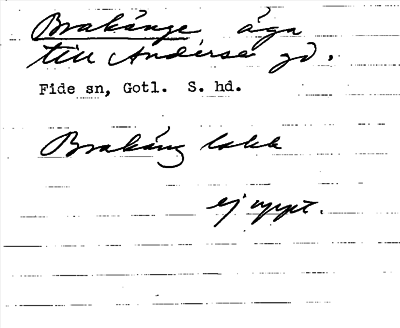 Brakänge äga
till Anderse gd.
Fide sn, Gotl. S. hd.
Brakäng lakk
ej uppt.